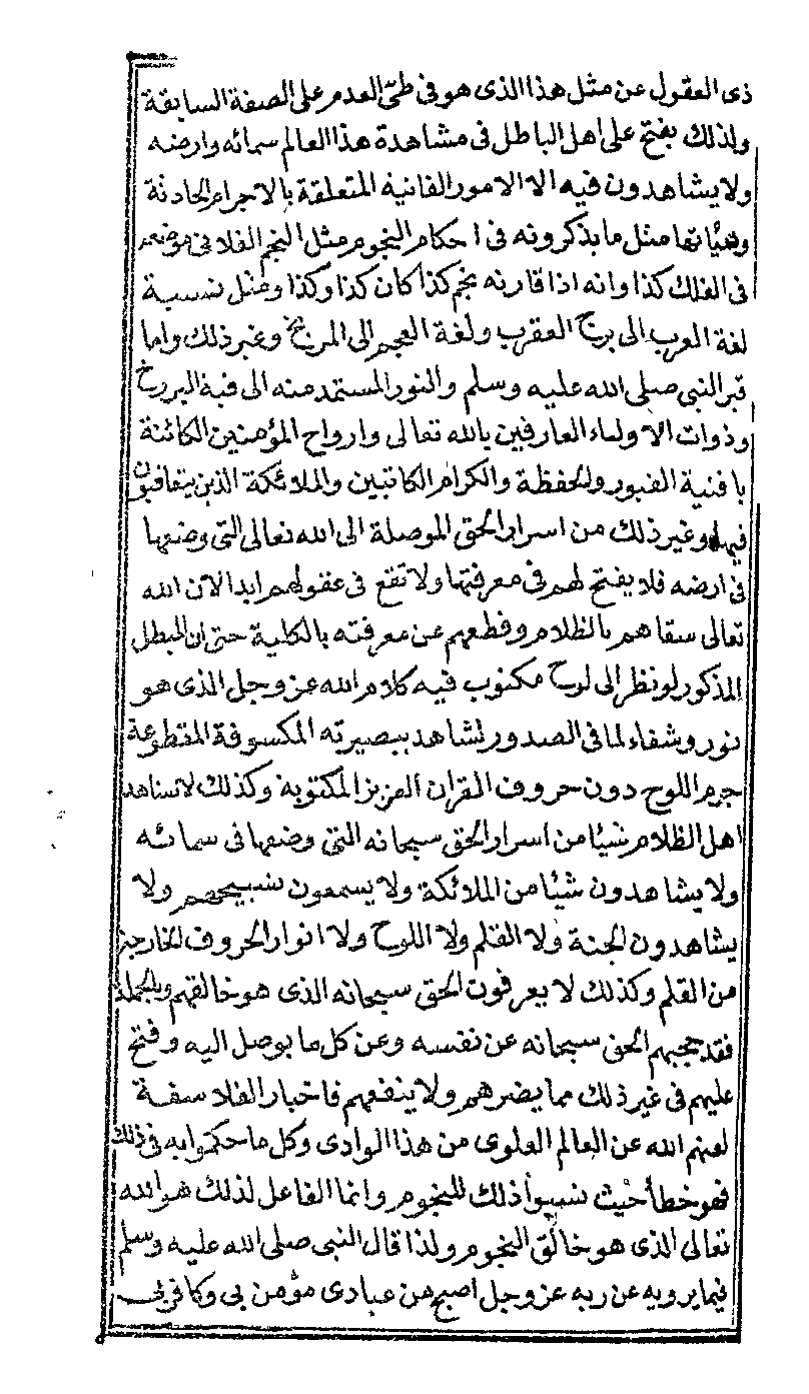 ذى العقول عن مثل هذا الذى هو فى طىّ العدم على الصفة السابقة
ولذلك يفتح على اهل الباطل فى مشاهدة هذا العالم سمائه وارضه
ولا يشاهدون فيه الا الامور الفانية المتعلقة بالاجرام الحادثة
وهيئاتها مثل ما يذكرونه فى احكام النجوم مثل النجم الفلانى موضعه
فى الفلك كذا وانه اذا قارنه نجم كذا كان كذا وكذا ومثل نسبة
لغة العرب الى برج العقرب ولغة العجم الى المريخ وغير ذلك واما
قبر النبى صلى الله عليه وسلم والنور المستمد منه الى قبة البرزخ
وذوات الاولياء العارفين بالله تعالى وارواح المؤمنين الكائنة
بافنية القبور والحفظة والكرام الكاتبين والملائكة الذين يتعاقبون
فيها وغير ذلك من اسرار الحق الموصلة الى الله تعالى التى وضعها
فى ارضه فلا يفتح لهم فى معرفتها ولا تقع فى عقولهم ابدا لان الله
تعالى سقاهم بالظلام وقطعهم عن معرفته بالكلية حتى ان المبطل
المذكور لو نظر الى لوح مكتوب فيه كلام الله عز وجل الذى هو
نور وشفاء لما فى الصدور لشاهد ببصيرته المكسوفة المقطوعة
جرم اللوح دون حروف القران العزيز المكتوبة وكذلك لا يشاهد
اهل الظلام شيئا من اسرار الحق سبحانه التى وضعها فى سمائه
ولا يشاهدون شيئا من الملائكة ولا يسمعون تسبيحهم ولا
يشاهدون الجنة ولا القلم ولا اللوح ولا انوار الحروف الخارجة
من القلم وكذلك لا يعرفون الحق سبحانه الذى هو خالقهم وبالجملة
فقد حجبهم الحق سبحانه عن نفسه وعن كل ما يوصل اليه وفتح
عليهم فى غير ذلك مما يضرهم ولا ينفعهم فاخبار الفلاسفة
لعنهم الله عن العالم العلوى من هذا الوادى وكل ما حكموا به فى ذلك
فهو خطأ حيث نسبوا ذلك للنجوم وانما الفاعل لذلك هو الله
تعالى الذى هو خالق النجوم ولذا قال النبى صلى الله عليه وسلم
فيما يرويه عن ربه عز وجل اصبح من عبادى مؤمن بى وكافر بى